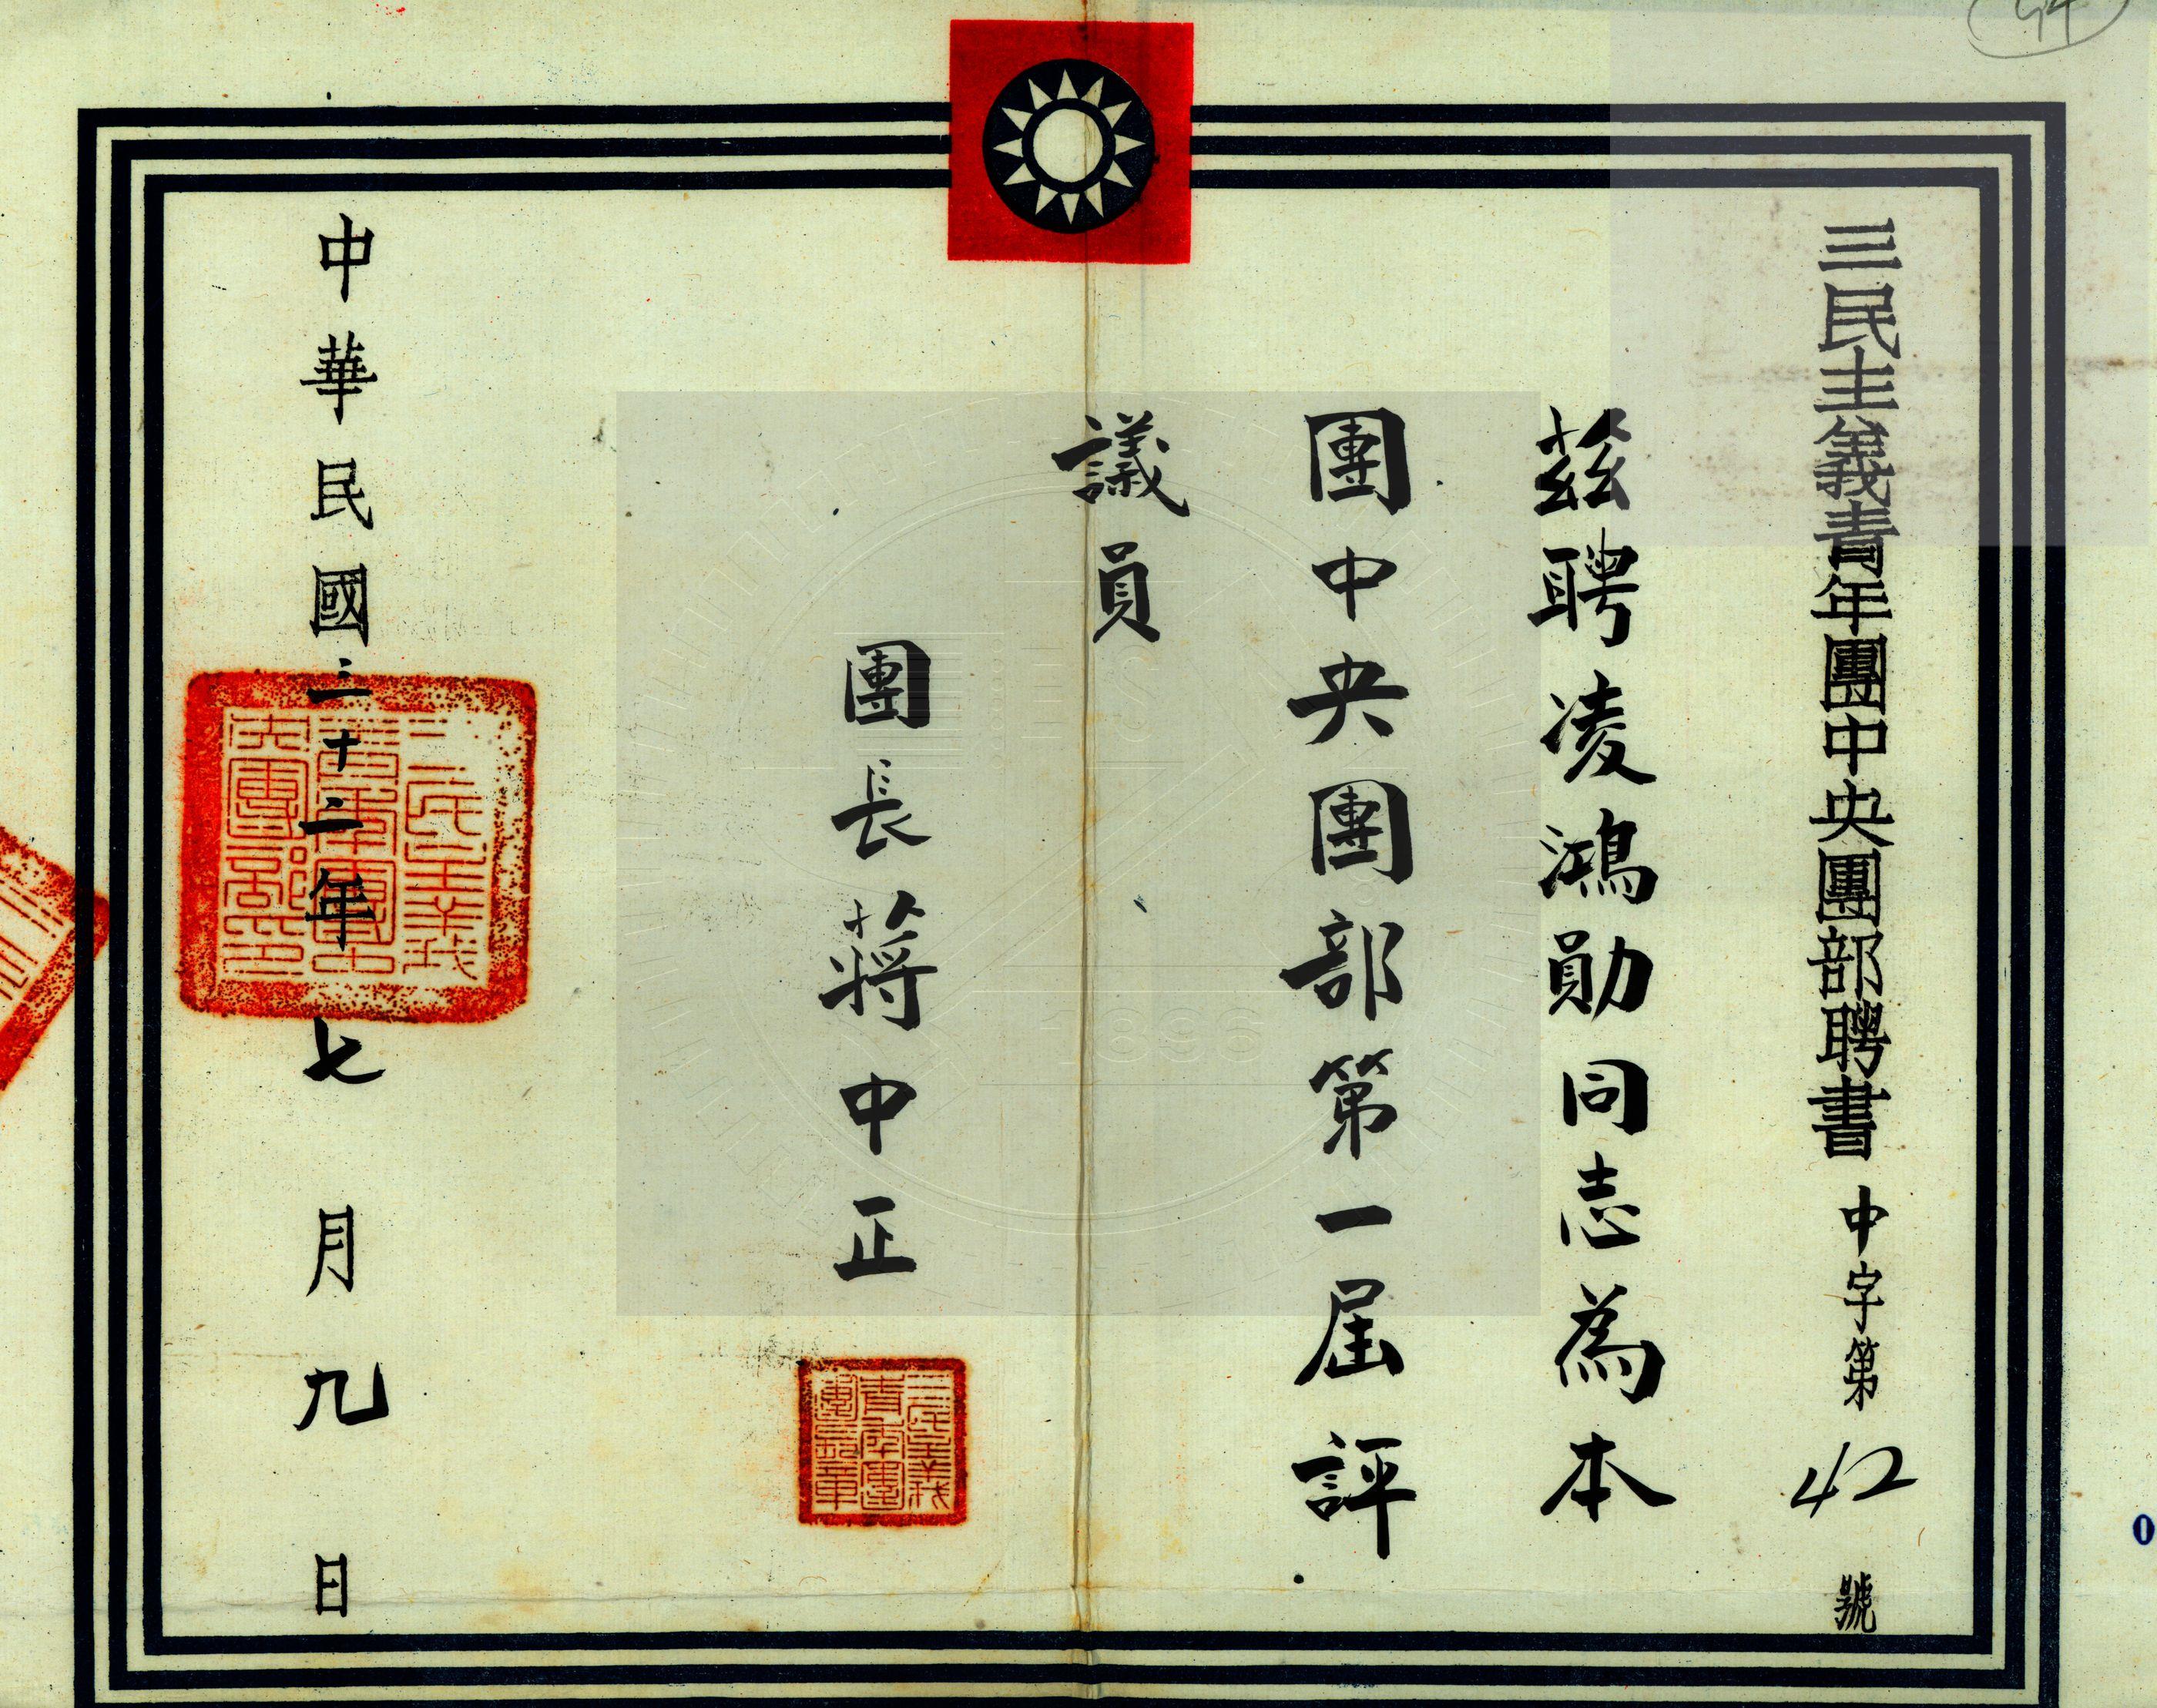 三民主義青年團中央團部聘書 中字第42號
茲聘凌鴻勛同志為本
團中央團部第一屆評
議員
團長蔣中正
三民主義
青年團
團長章
中華民國三十二年七月九日
三民主義
青年團中
央團部印
1896